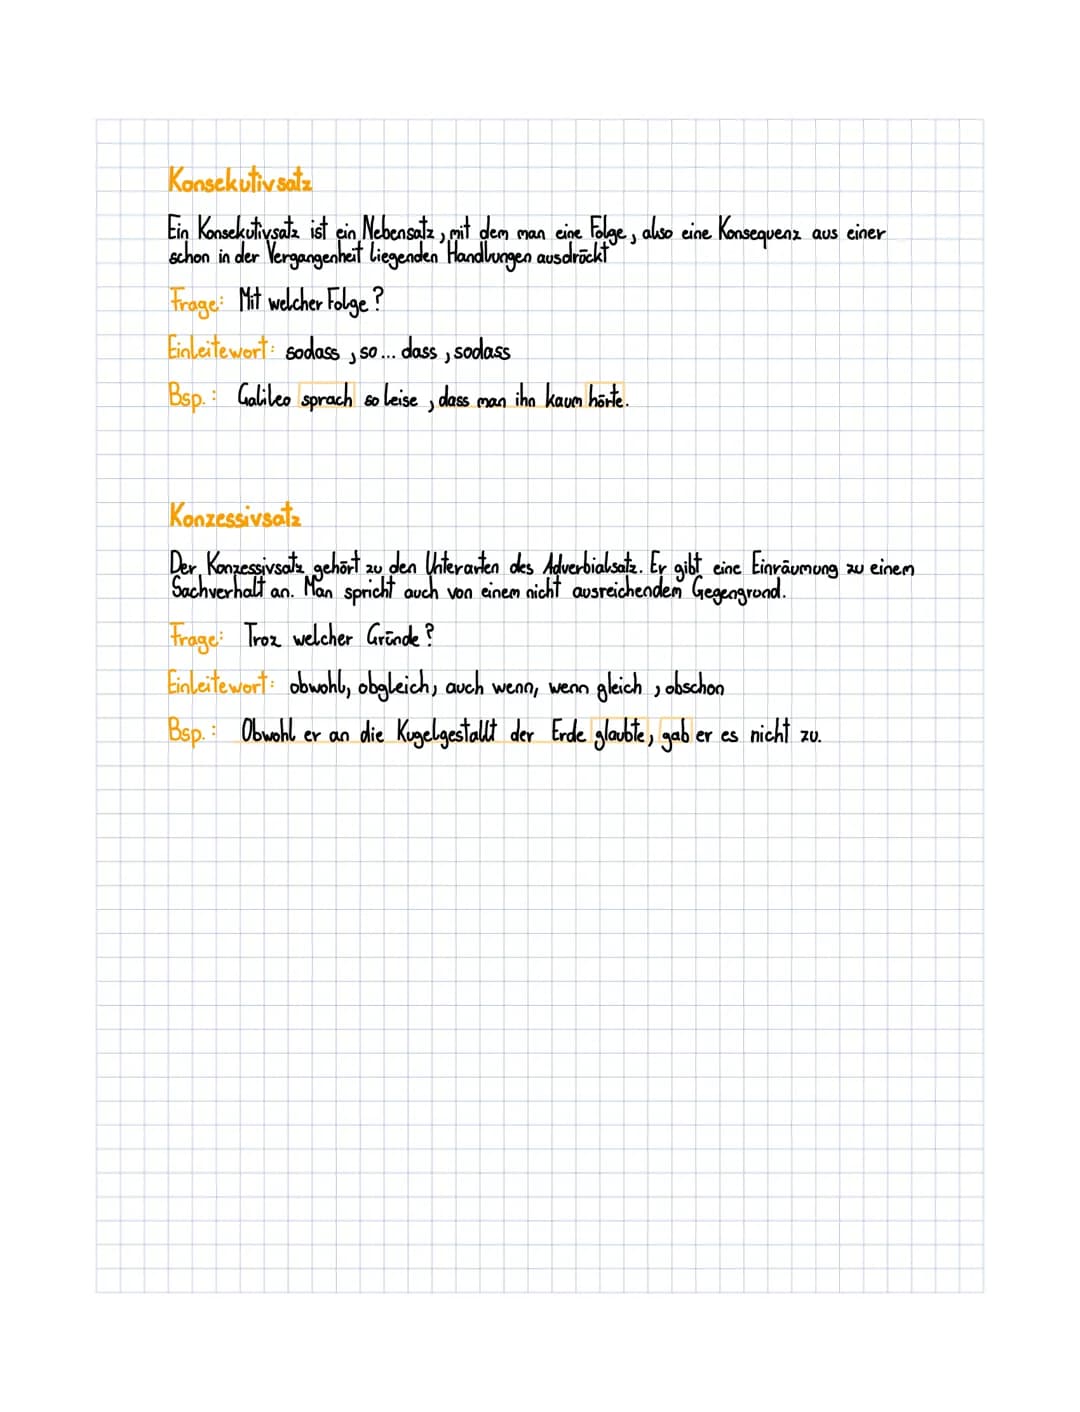 Konsekutivsatz
Ein Konsekutivsatz ist ein Nebensatz, mit dem man eine Folge, also eine Konsequenz aus einer
schon in der Vergangenheit liegenden Handlungen ausdrückt
Frage: Mit welcher Folge?
Einleitewort: sodass, so... dass, sodass
Bsp.: Galileo sprach so leise, dass man ihn kaum hörte.
Konzessivsatz
Der Konzessivsatz gehört zu den Unterarten des Adverbialsatz. Er gibt eine Einräumung zu einem
Sachverhalt an. Man spricht auch von einem nicht ausreichendem Gegengrund.
Frage: Troz welcher Gründe?
Einleitewort: obwohl, obgleich, auch wenn, wenn gleich, obschon
Bsp.: Obwohl er an die Kugelgestallt der Erde glaubte, gab er es nicht zu.